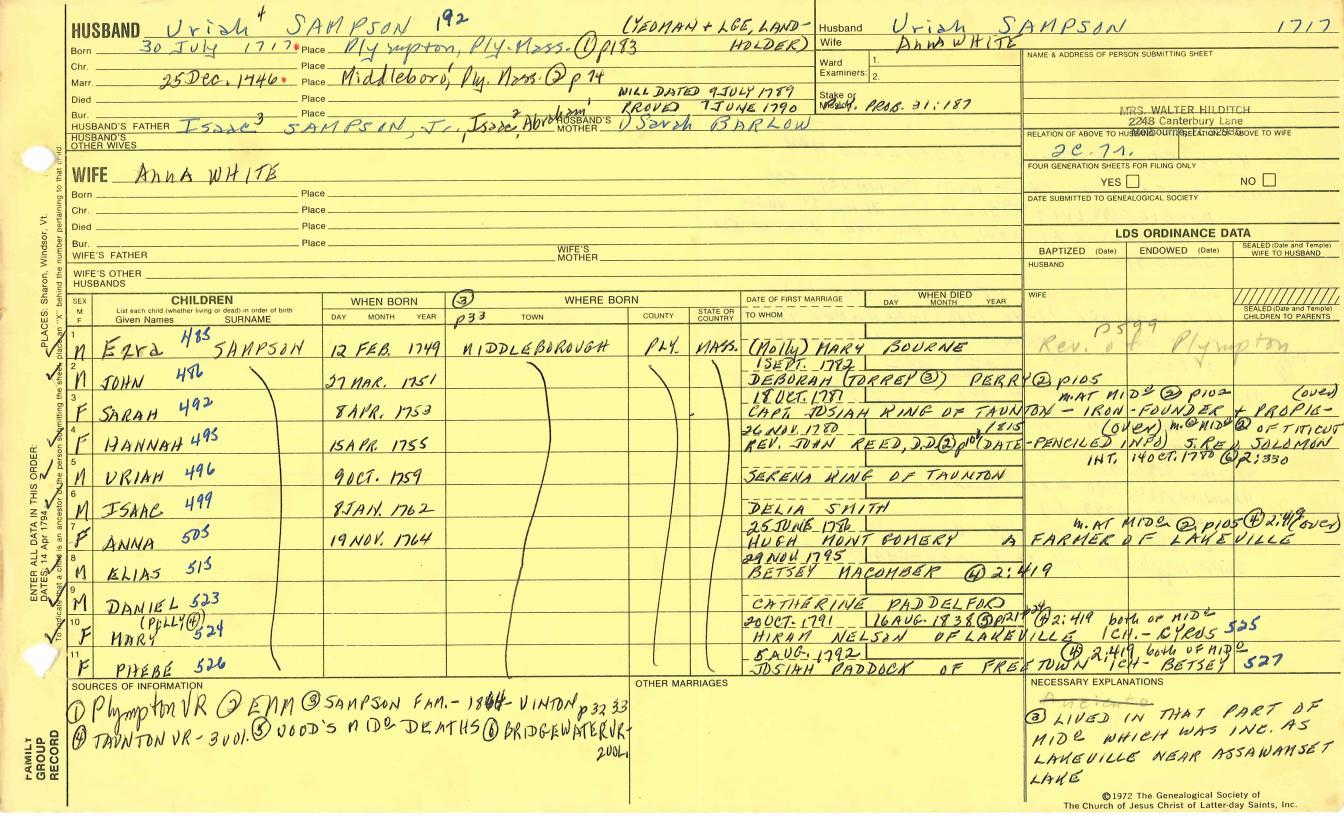 HUSBAND Uriah 4 SAMPSON 192 (YEOMAN + LGE, LAND-HOLDER)
Born 30 July 1717 Place Plympton, Ply. Mass. ① p183
Chr. Place
Marr. 25 Dec. 1746 Place Middleboro, Ply. Mass. ② p 74
Died Place WILL DATED 9 JULY 1789
Bur. Place PROVED 7 JUNE 1790
HUSBAND'S FATHER Isaac 3 SAMPSON, Jr., Isaac 2 Abraham 1 HUSBAND'S MOTHER Sarah BARLOW
HUSBAND'S OTHER WIVES
Husband Uriah SAMPSON 1717
Wife Anna WHITE
Ward 1.
Examiners: 2.
Stake or
PROB. 31:187
NAME & ADDRESS OF PERSON SUBMITTING SHEET
MRS. WALTER HILDITCH
2248 Canterbury Lane
RELATION OF ABOVE TO HUSBAND RELATION OF ABOVE TO WIFE
2C.7r.
FOUR GENERATION SHEETS FOR FILING ONLY
YES NO
DATE SUBMITTED TO GENEALOGICAL SOCIETY
WIFE Anna WHITE
Born Place
Chr. Place
Died Place
Bur. Place
WIFE'S FATHER WIFE'S MOTHER
WIFE'S OTHER HUSBANDS
LDS ORDINANCE DATA
BAPTIZED (Date) ENDOWED (Date) SEALED (Date and Temple) WIFE TO HUSBAND
HUSBAND
WIFE
SEALED (Date and Temple) CHILDREN TO PARENTS
SEX M F CHILDREN WHEN BORN ③ WHERE BORN DATE OF FIRST MARRIAGE WHEN DIED
List each child (whether living or dead) in order of birth
Given Names SURNAME DAY MONTH YEAR p33 TOWN COUNTY STATE OR COUNTRY TO WHOM DAY MONTH YEAR
p599
Rev. of Plympton
1 M Ezra 485 SAMPSON 12 FEB. 1749 MIDDLEBOROUGH PLY. MASS. (Molly) MARY BOURNE
1 SEPT. 1782
2 M JOHN 486 27 MAR. 1751 DEBORAH (TORREY ③) PERRY ② p105
18 OCT. 1781 m. AT MIDo ② p102 (over)
3 F SARAH 492 8 APR. 1753 CAPT. JOSIAH KING OF TAUNTON - IRON-FOUNDER + PROPIE-
26 NOV. 1780 1815 (over) m. @ MIDo ② OF TITICUT
4 F HANNAH 495 15 APR. 1755 REV. JOHN REED, D.D. ② p109 (DATE-PENCILED INFO) S. REV. SOLOMON
INT. 14 OCT. 1780 ⑥ 2:330
5 M URIAH 496 9 OCT. 1759 SERENA KING OF TAUNTON
6 M ISAAC 499 8 JAN. 1762 DELIA SMITH
25 JUNE 1786 m. AT MIDo ② p105 ④ 2:419 (over)
7 F ANNA 505 19 NOV. 1764 HUGH MONTGOMERY A FARMER OF LAKEVILLE
29 NOV. 1795
8 M ELIAS 515 BETSEY MACOMBER ④ 2:419
9 M DANIEL 523 CATHERINE PADDELFORD
(POLLY ④) 20 OCT. 1791 16 AUG. 1838 ⑤ ④ 2:419 both of MIDo
10 F MARY 524 HIRAM NELSON OF LAKEVILLE 1CH. - CYRUS 525
5 AUG. 1792 ④ 2:419 both of MIDo
11 F PHEBE 526 JOSIAH PADDOCK OF FREETOWN 1CH - BETSEY 527
SOURCES OF INFORMATION
① Plympton VR ② EMM ③ SAMPSON FAM. - 1864 - VINTON p32 33
④ TAUNTON VR - 3 vol. ⑤ WOOD'S MIDo DEATHS ⑥ BRIDGEWATER VR - 2 VOL.
OTHER MARRIAGES
NECESSARY EXPLANATIONS
③ LIVED IN THAT PART OF
MIDo WHICH WAS INC. AS
LAKEVILLE NEAR ASSAWAMSET
LAKE
©1972 The Genealogical Society of
The Church of Jesus Christ of Latter-day Saints, Inc.
ENTER ALL DATA IN THIS ORDER:
DATES: 14 Apr 1794 PLACES: Sharon, Windsor, Vt.
To indicate that a child is an ancestor of the person submitting the sheet, place an "X" behind the number pertaining to that child.
FAMILY GROUP RECORD